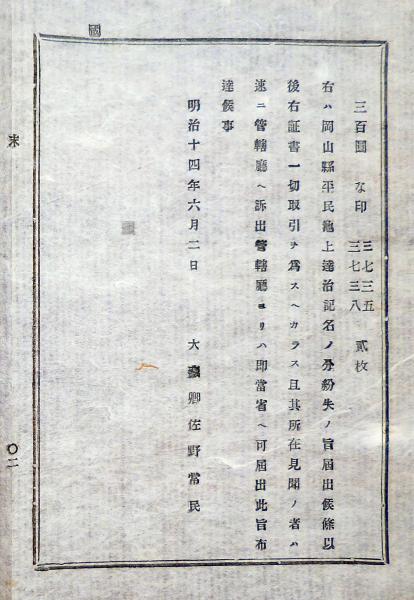 三百圓 な印 三七三五 三七三八 貳枚
右ハ岡山縣平民池上達治記名ノ分紛失ノ旨届出候條以
後右証書一切取引ヲ爲スヘカラス且其所在見聞ノ者ハ
速ニ管轄廳ヘ訴出管轄廳ヨリハ即當省ヘ可届出此旨布
達候事
明治十四年六月二日 大藏卿佐野常民
〇二